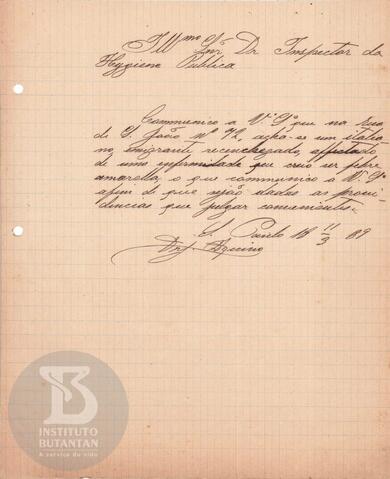 Illmo Snr Dr Inspector da
Hygiene Publica
Communico a Vª Sª que na rua
de S. João Nº 72, acha-se um italia
no, emigrante, recenchegado, affectado
de uma enfirmidade que creio ser febre
amarella, o que communico a Vª Sª
afim de que sejão dadas as provi
dencias que julgar convenientes.
S. Paulo 18 11/3 89
Dr.
INSTITUTO
BUTANTAN
A serviço da vida